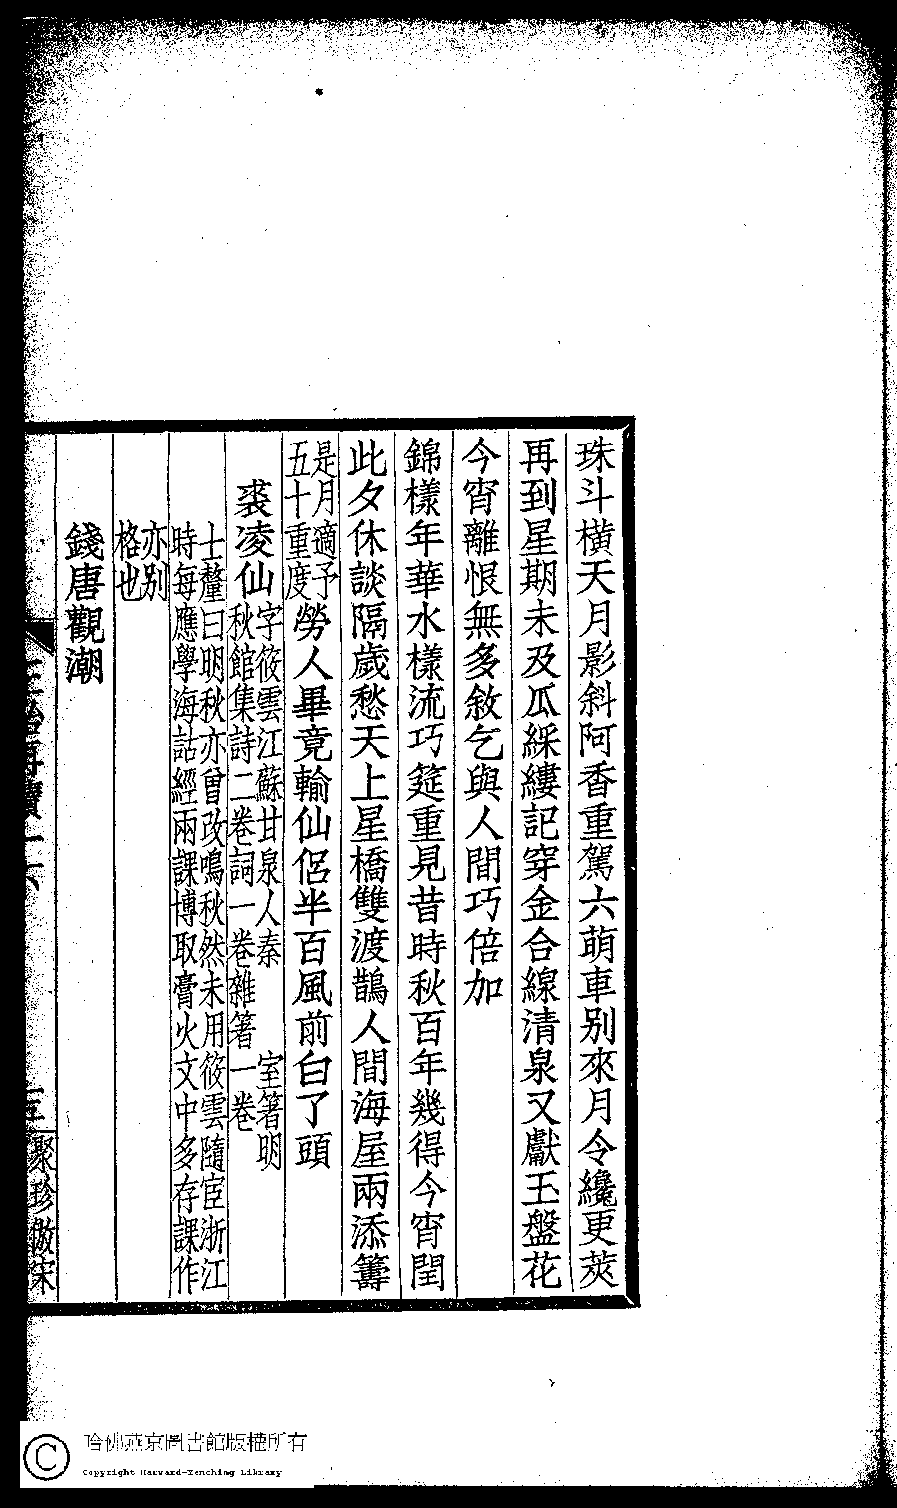 珠斗橫天月影斜阿香重駕六萌車別來月令纔更莢
再到星期未及瓜綵縷記穿金合線清泉又獻玉盤花
今宵離恨無多敘乞與人間巧倍加
錦樣年華水樣流巧筵重見昔時秋百年幾得今宵閏
此夕休談隔歲愁天上星橋雙渡鵲人間海屋兩添籌
是月適予
五十重度
勞人畢竟輸仙侶半百風前白了頭
裘凌仙
字筱雲江蘇甘泉人秦 室箸明
秋館集詩二卷詞一卷雜箸一卷
士釐曰明秋亦曾改鳴秋然未用筱雲隨宦浙江
時每應學海詁經兩課博取膏火文中多存課作
亦別
格也
錢唐觀潮
三 聚珍倣宋
哈佛燕京圖書館版權所有
Copyright Harvard-Yenching Library